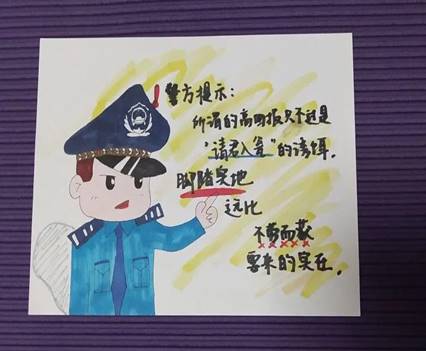 警方提示:
所谓的高回报只不过是
"请君入瓮"的诱饵,
脚踏实地
远比
不劳而获
要来的实在。